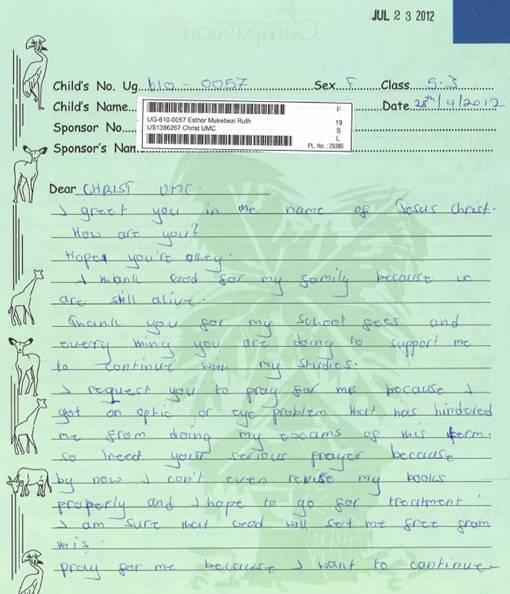 Compassion
JUL 23 2012
Child's No. Ug. 610 - 0057 Sex F Class S.3
Child's Name F Date 28th/4/2012
UG-610-0057 Esther Mukebezi Ruth 19
Sponsor No. US1386267 Christ UMC S
L
Sponsor's Nam PL. No. : 29386
Dear CHRIST UMC.
I greet you in the name of Jesus Christ.
How are you?
Hope you're okey.
I thank God for my family because we
are still alive.
Thank you for my school fees and
every thing you are doing to support me
to continue with my studies.
I request you to pray for me because I
got an optic or eye problem that has hindered
me from doing my exams of this term.
so I need your serious prayer because
by now I can't even revise my books
properly and I hope to go for treatment.
I am sure that God will set me free from
this.
pray for me because I want to continue